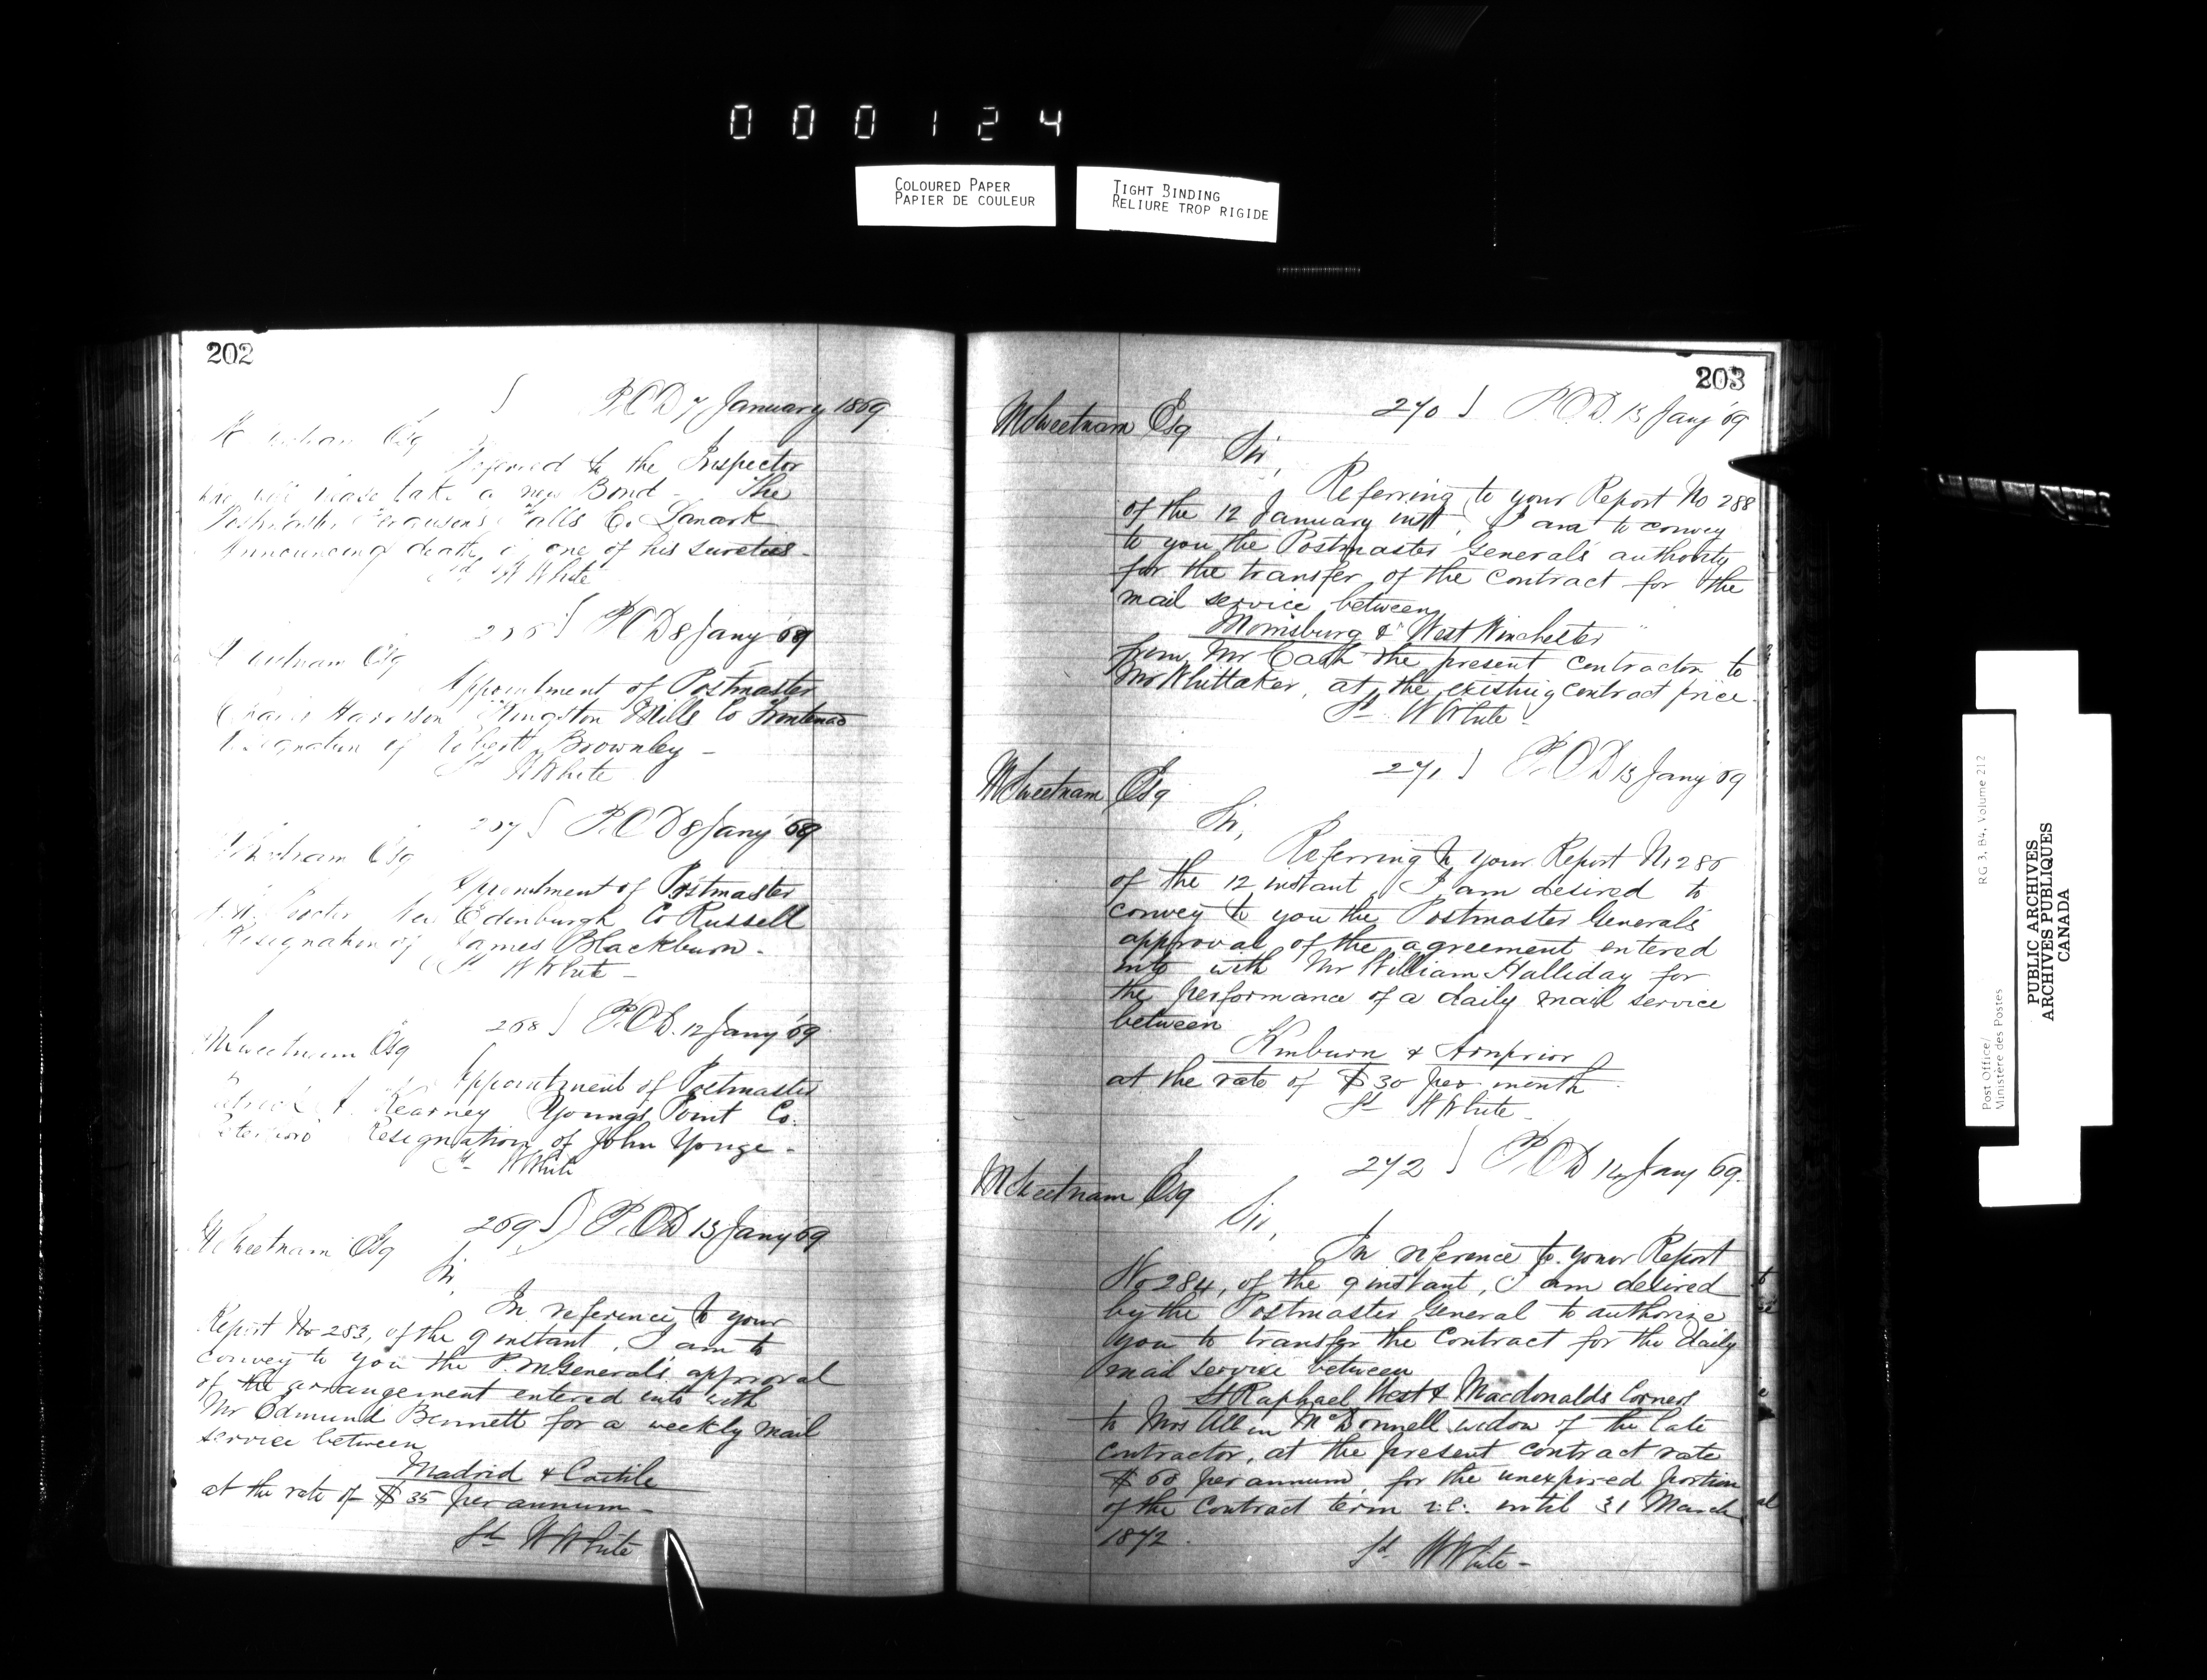 000124
COLOURED PAPER
PAPIER DE COULEUR
TIGHT BINDING
RELIURE TROP RIGIDE
202
P.O.D 7 January 1869
Esq
Referred to the Inspector
who will please take a new Bond - The
Postmaster Ferguson's Falls Co. Lanark
Announcing death of one of his sureties -
Sd W White
P.O.D 8 Jany 69
Sweetnam Esq
Appointment of Postmaster
Harrison Kingston Mills Co Frontenac
Resignation of Robert Brownley -
Sd W White
267 } P.O.D 8 Jany '69
Sweetnam Esq
Appointment of Postmaster
New Edinburgh Co Russell
Resignation of James Blackburn -
Sd W White -
268 } P.O.D. 12 Jany '69
M Sweetnam Esq
Appointment of Postmaster
Patrick A. Kearney Youngs Point Co.
Peterboro Resignation of John Yonge -
Sd W White
269 } P.O.D 13 Jany 69
M Sweetnam Esq
Sir,
In reference to your
Report No 283, of the 9 instant, I am to
convey to you the P.M. Generals approval
of the arrangement entered into with
Mr Edmund Bennett for a weekly mail
service between
Madrid & Castile
at the rate of $35 per annum -
Sd W White
203
270 } P.O.D. 13 Jany '69
M Sweetnam Esq
Sir,
Referring to your Report No 288
of the 12 January inst, I am to convey
to you the Postmaster Generals authority
for the transfer of the contract for the
mail service between
Morrisburg & West Winchester
from Mr Cash the present contractor to
Mr Whittaker, at the existing contract price -
Sd W White -
271 } P.O.D 13 Jany '69
M Sweetnam Esq
Sir,
Referring to your Report No 286
of the 12 instant, I am desired to
convey to you the Postmaster Generals
approval of the agreement entered
into with Mr William Halliday for
the performance of a daily mail service
between
Kinburn & Arnprior
at the rate of $30 per month -
Sd W White -
272 } P.O.D 14 Jany 69.
M Sweetnam Esq
Sir,
In reference to your Report
No 284, of the 9 instant, I am desired
by the Postmaster General to authorize
you to transfer the Contract for the daily
mail service between
St Raphael West & Macdonalds Corners
to Mrs Allen McDonnell widow of the late
contractor, at the present contract rate
$60 per annum, for the unexpired portion
of the contract term i.e. until 31 March
1872.
Sd W White -
Post Office/
Ministère des Postes
RG 3, B4, Volume 212
PUBLIC ARCHIVES
ARCHIVES PUBLIQUES
CANADA